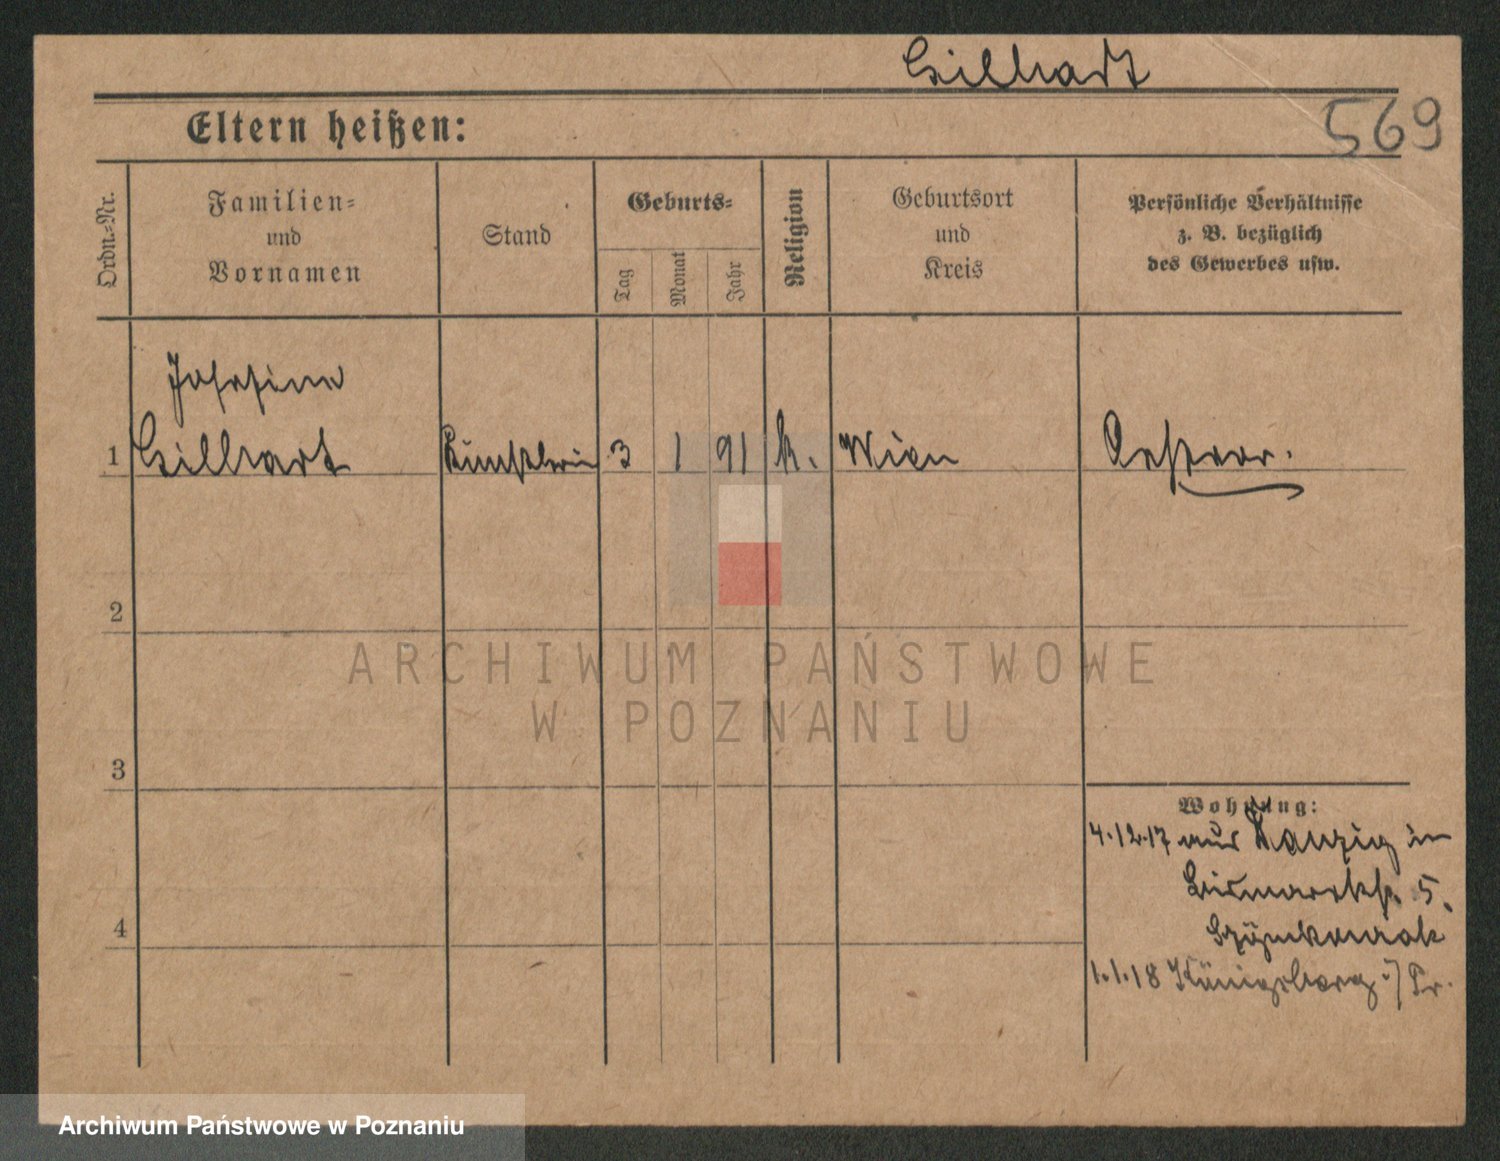 Gillhart
569
Eltern heißen:
Ordn.-Nr.
Familien-
und
Vornamen
Stand
Geburts-
Tag
Monat
Jahr
Religion
Geburtsort
und
Kreis
Persönliche Verhältnisse
z. B. bezüglich
des Gewerbes usw.
Josefine
1 Künstlerin 3 1 91 k. Wien
2
3
4
Wohnung:
4.12.17 aus Danzig in
Bismarckstr. 5.
1.1.18 Königsberg i/Pr.
ARCHIWUM PAŃSTWOWE
W POZNANIU
Archiwum Państwowe w Poznaniu